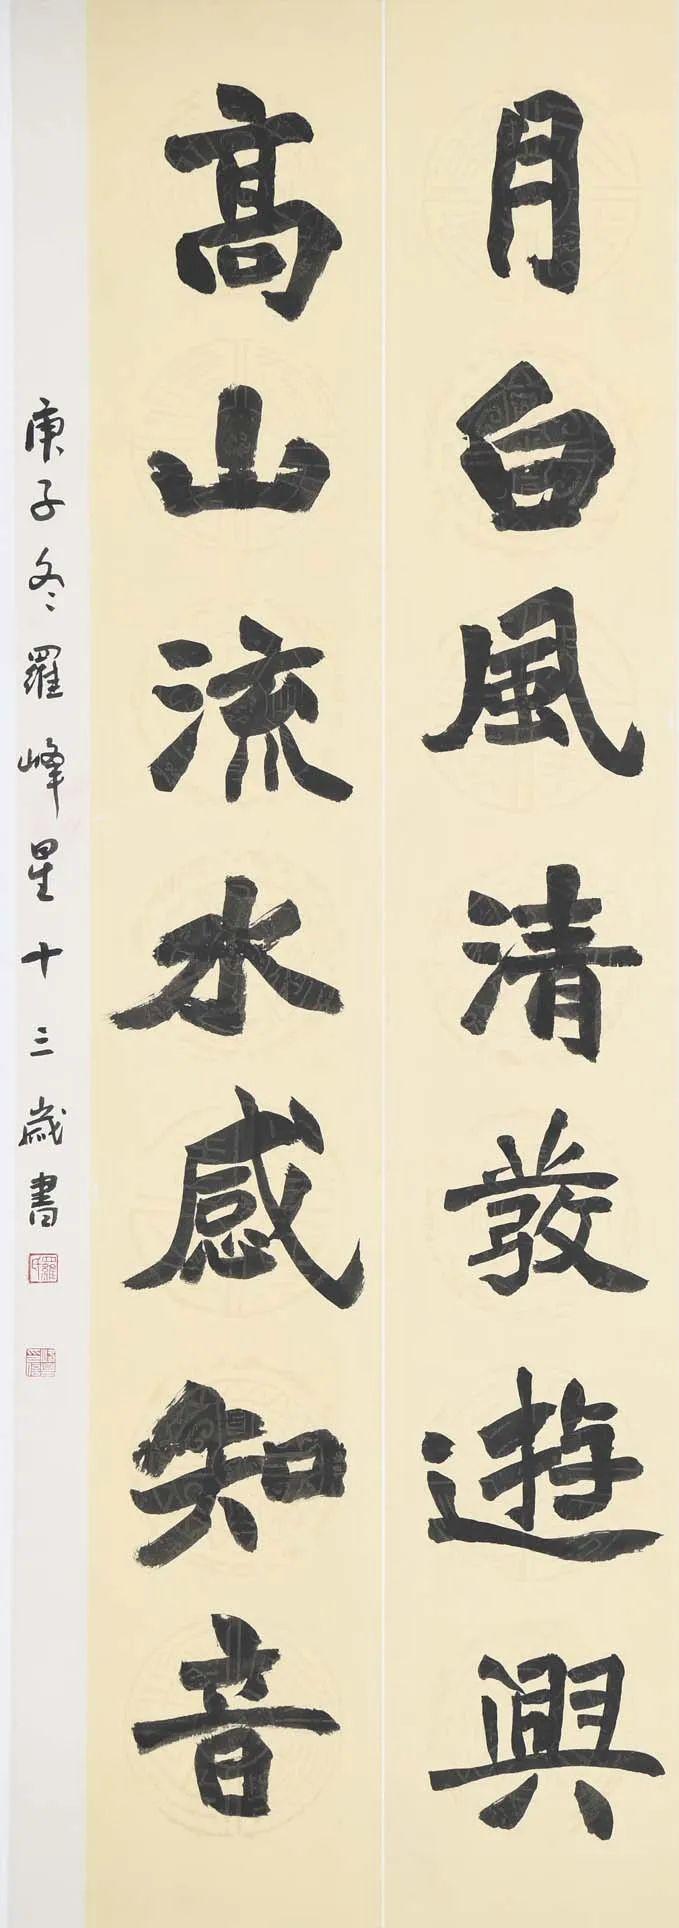 月白風清發遊興
高山流水感知音
庚子冬羅峰星十三歲書
羅氏